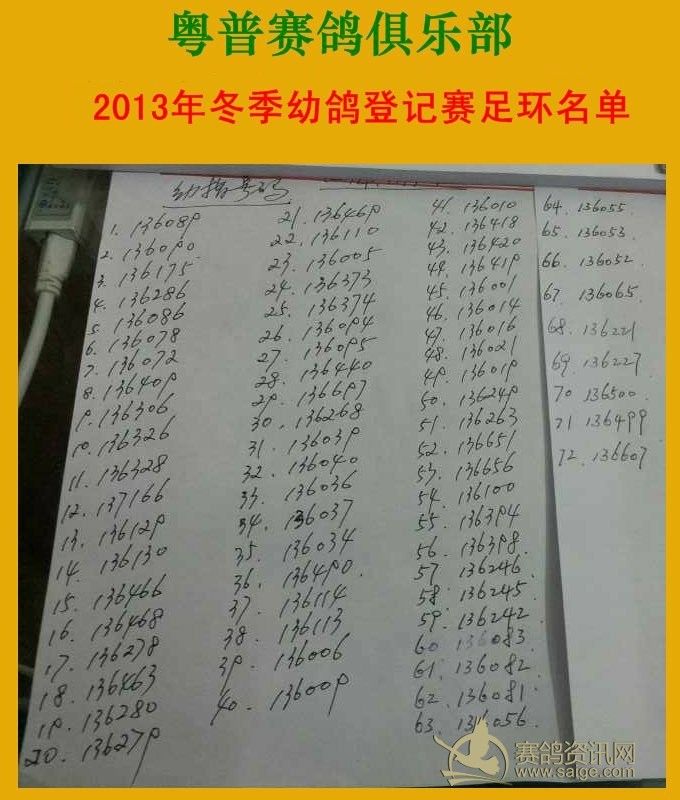 粤普赛鸽俱乐部
2013年冬季幼鸽登记赛足环名单
幼鸽号码
1. 136089
2. 136090
3. 136175
4. 136286
5. 136086
6. 136078
7. 136072
8. 136409
9. 136306
10. 136326
11. 136328
12. 137166
13. 136129
14. 136130
15. 136466
16. 136468
17. 136278
18. 136463
19. 136280
20. 136279
21. 136469
22. 136110
23. 136005
24. 136373
25. 136374
26. 136094
27. 136095
28. 136440
29. 136697
30. 136268
31. 136039
32. 136040
33. 136036
34. 136037
35. 136034
36. 136490
37. 136114
38. 136113
39. 136006
40. 136009
41. 136010
42. 136418
43. 136420
44. 136419
45. 136001
46. 136014
47. 136016
48. 136021
49. 136019
50. 136249
51. 136263
52. 136651
53. 136656
54. 136100
55. 136394
56. 136398
57. 136246
58. 136245
59. 136242
60. 136083
61. 136082
62. 136081
63. 136056
64. 136055
65. 136053
66. 136052
67. 136065
68. 136221
69. 136227
70 136500
71 136499
72. 136607
赛鸽资讯网
www.saige.com